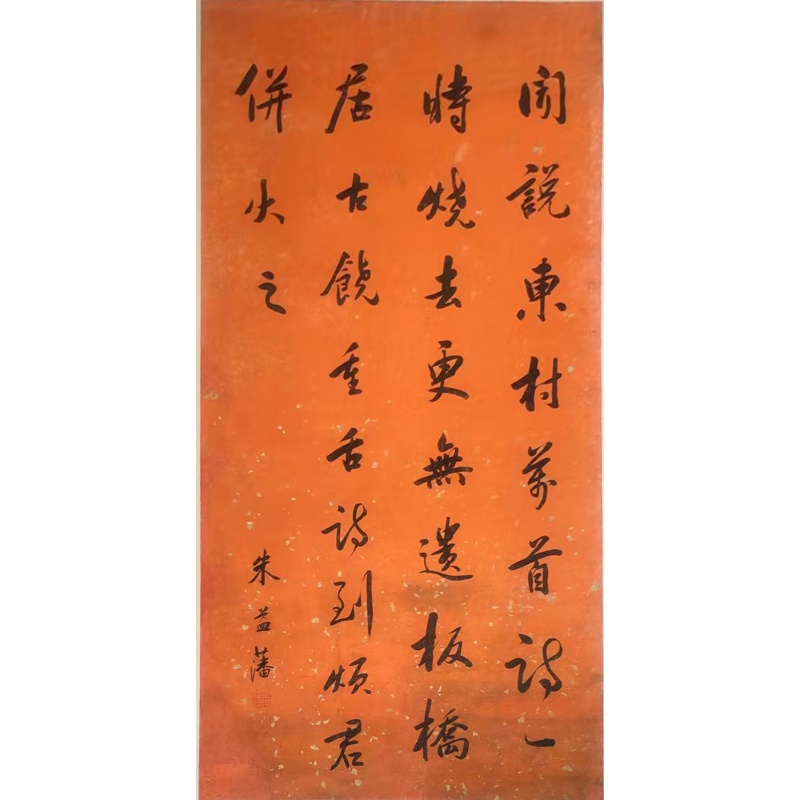 闻說東村萬首詩一
時燒去更無遺板橋
居古饒重舌詩到煩君
併火之
朱益藩